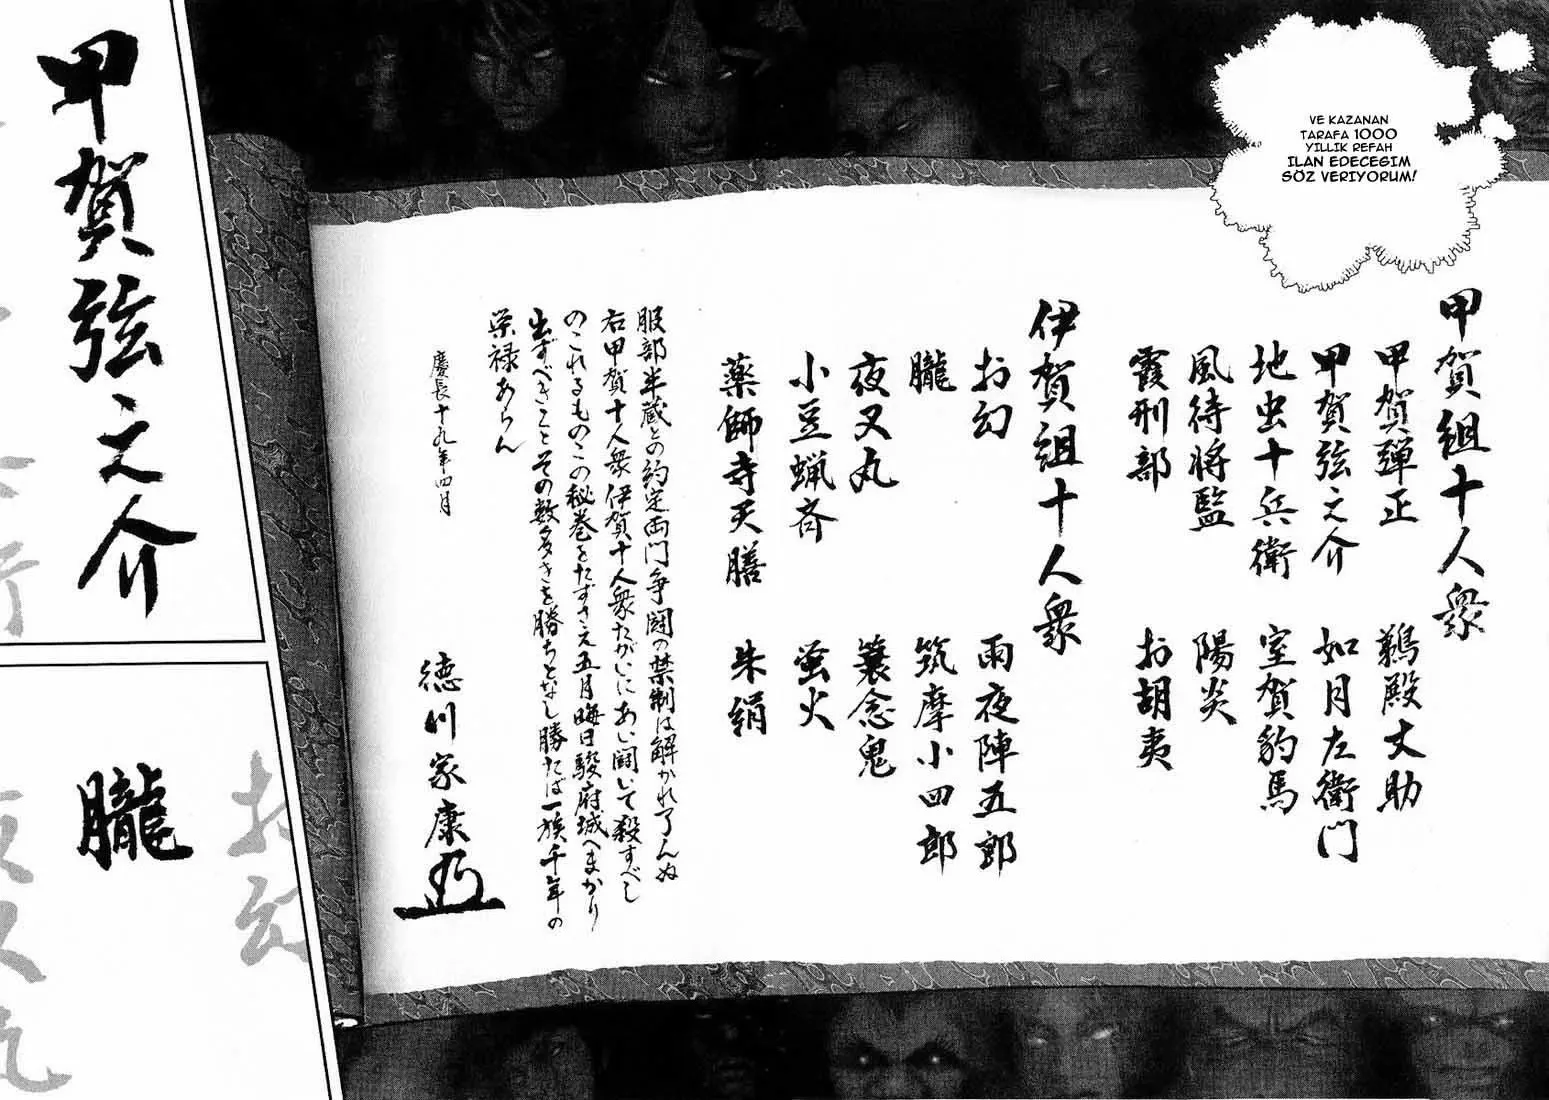 VE KAZANAN
TARAFA 1000
YILLIK REFAH
ILAN EDECEGIM
SÖZ VERIYORUM!
甲賀組十人衆
甲賀弾正
鵜殿丈助
甲賀弦之介
如月左衛門
地虫十兵衛
室賀豹馬
風待将監
陽炎
霞刑部
お胡夷
伊賀組十人衆
お幻
雨夜陣五郎
朧
筑摩小四郎
夜叉丸
蓑念鬼
小豆蝋斉
蛍火
薬師寺天膳
朱絹
服部半蔵との約定両門争闘の禁制は解かれ了んぬ
右甲賀十人衆伊賀十人衆たがいにあい闘いて殺すべし
のこれるものこの秘巻をたずさえ五月晦日駿府城へまかり
出ずべきことその数多きを勝ちとなし勝たば一族千年の
栄禄あらん
慶長十九年四月
徳川家康
甲賀弦之介
朧
お幻